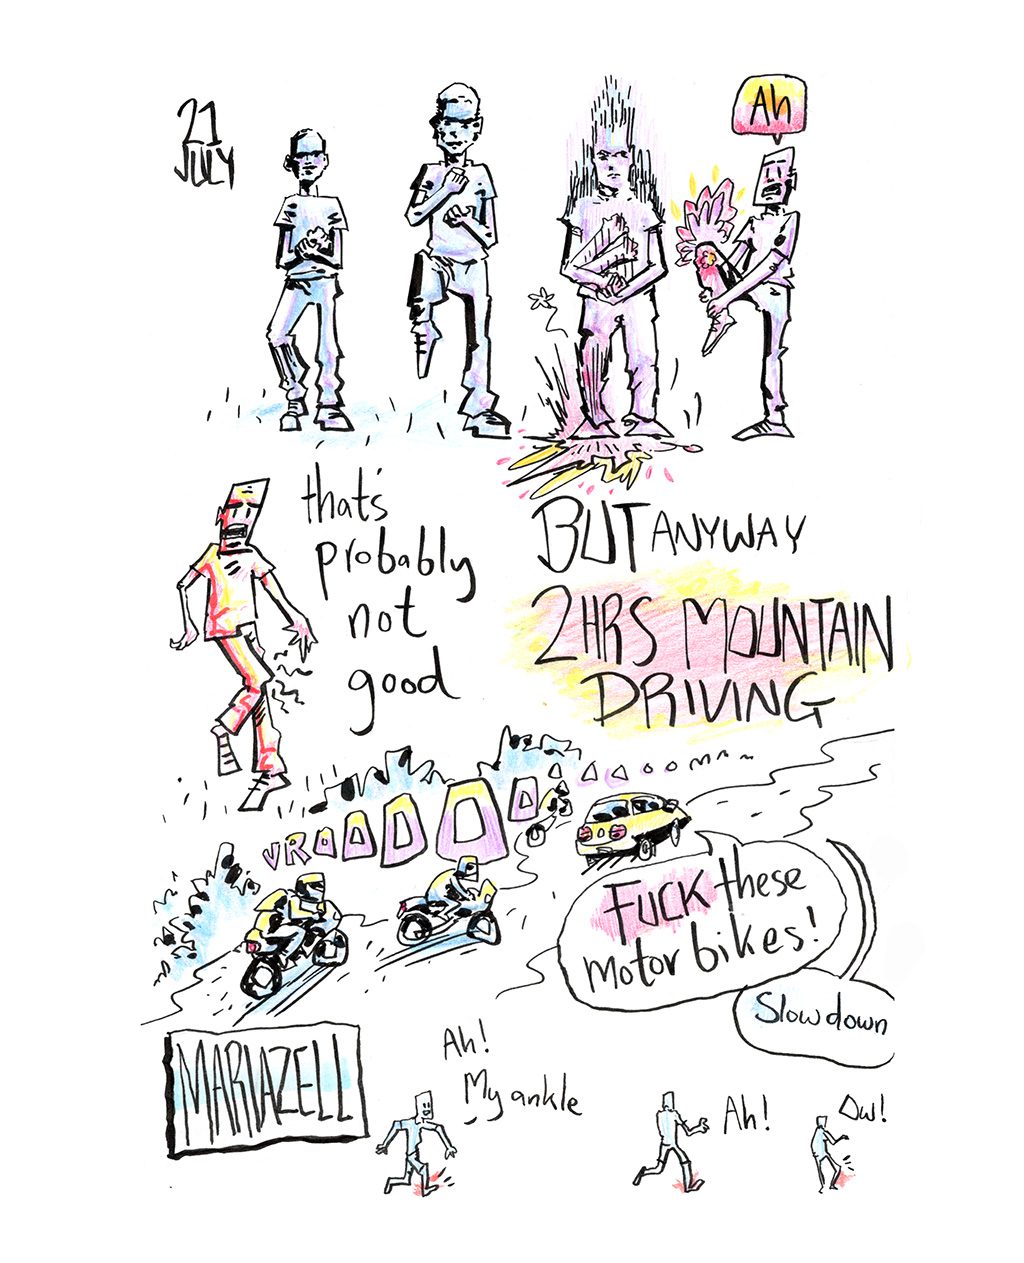 21
JULY
Ah
that's
probably
not
good
BUT ANYWAY
2HRS MOUNTAIN
DRIVING
VROOOOOOOOOOMM~~
FUCK these
motor bikes!
Slow down
MARIAZELL
Ah!
My ankle
Ah!
Ow!